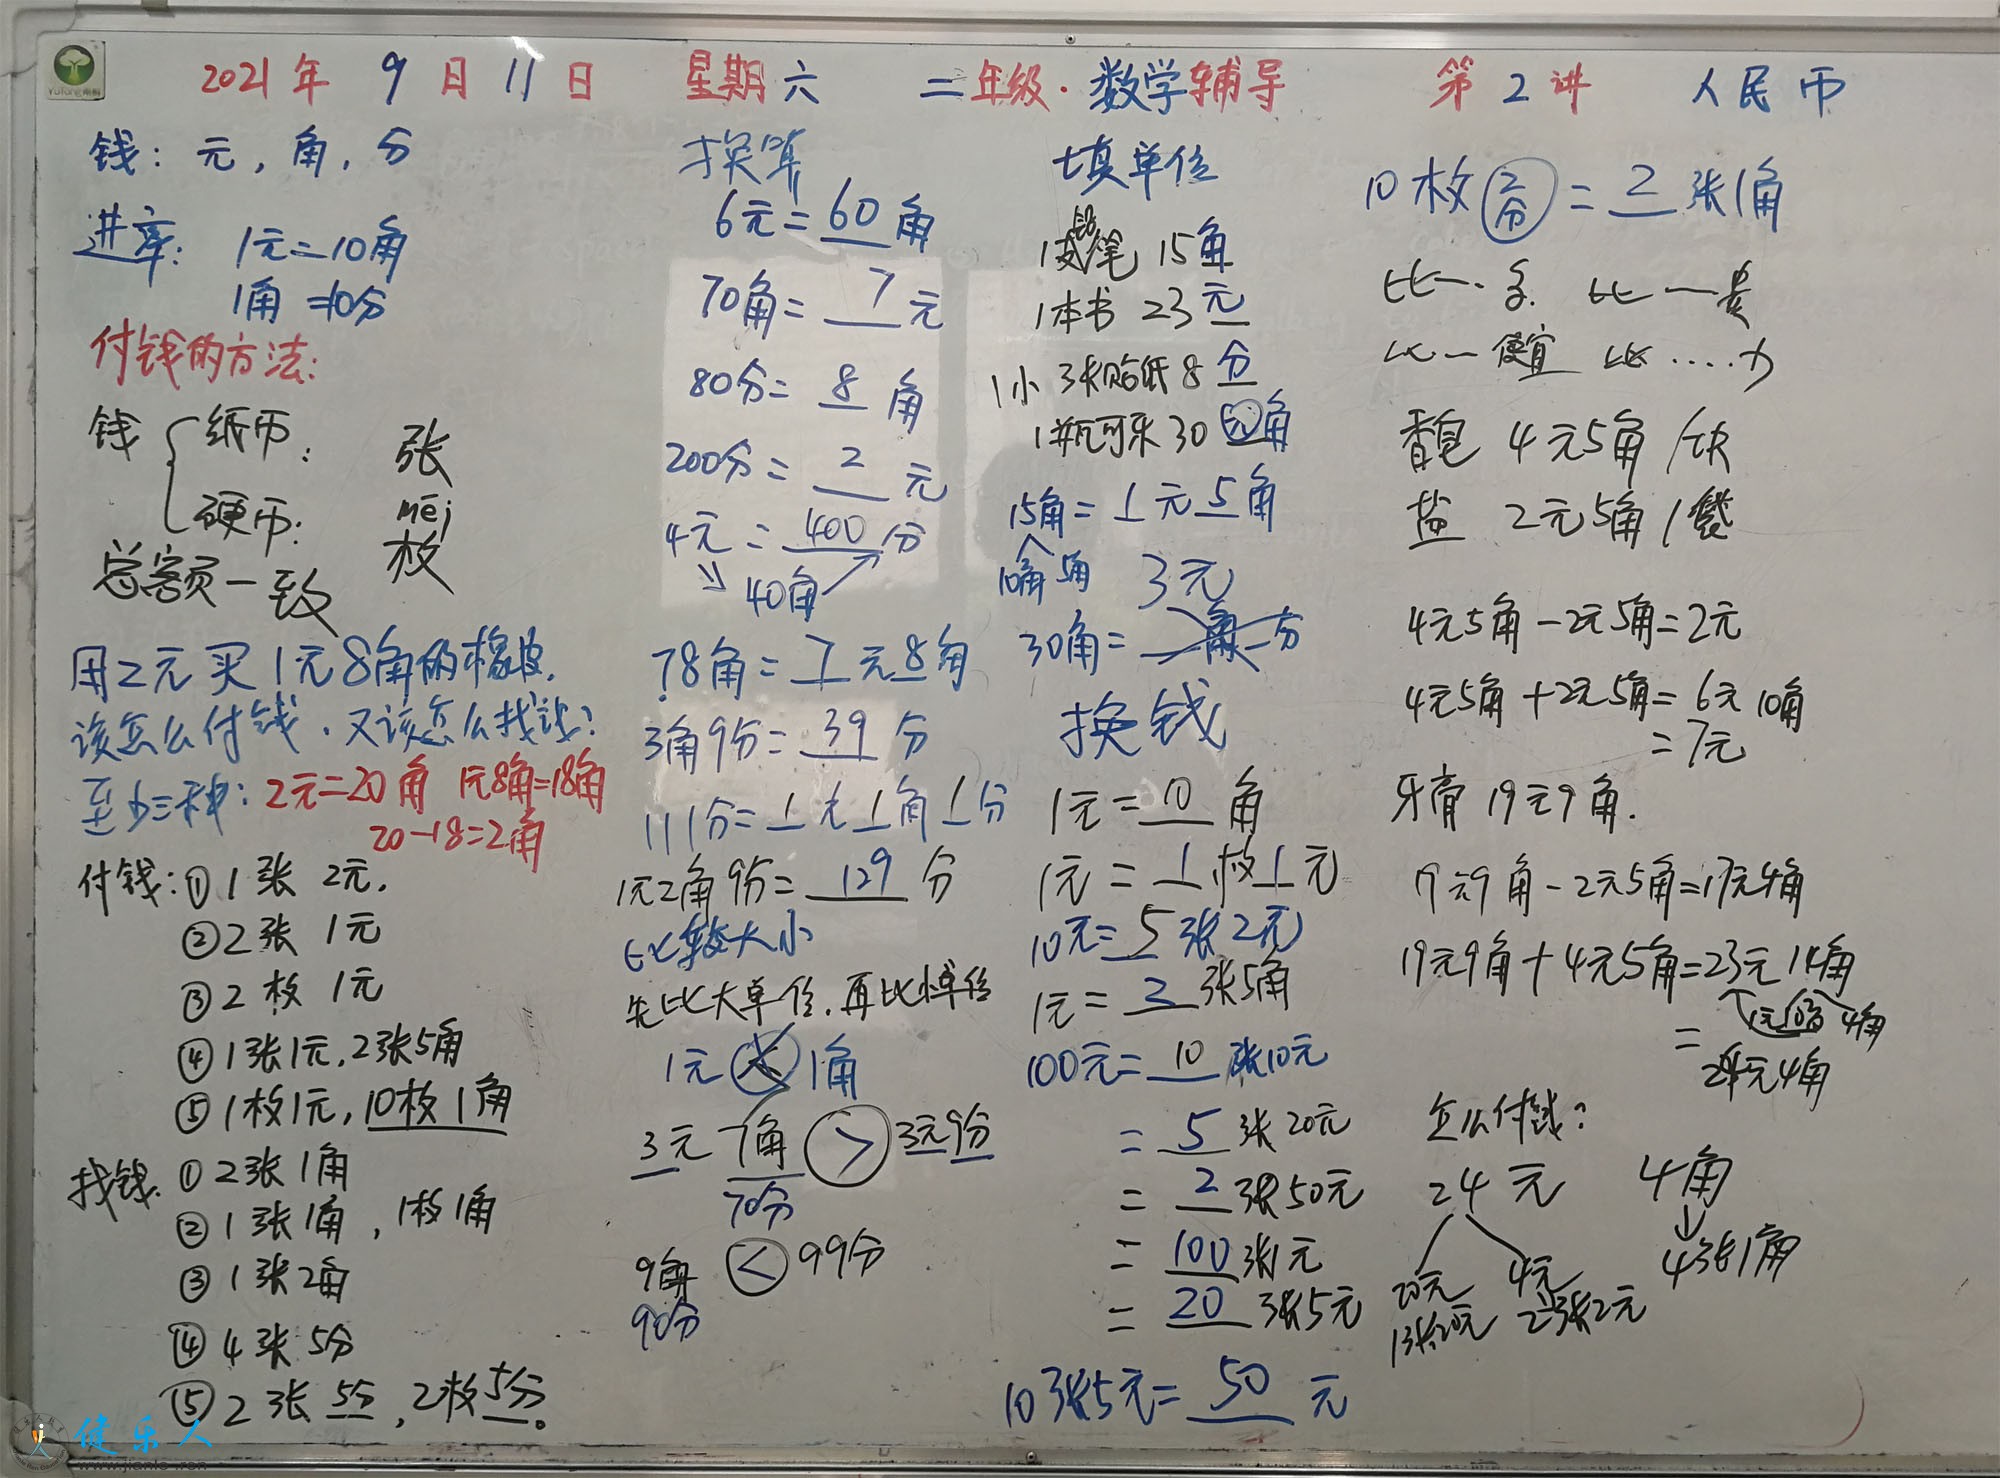 2021年9月11日 星期六 二年级·数学辅导 第2讲 人民币
钱：元，角，分
进率：1元=10角
1角=10分
付钱的方法：
钱 纸币：张
硬币：枚
měi
总额一致
用2元买1元8角的橡皮，
该怎么付钱，又该怎么找钱？
至少三种：2元=20角 1元8角=18角
20-18=2角
付钱：①1张2元，
②2张1元
③2枚1元
④1张1元，2张5角
⑤1枚1元，10枚1角
找钱：①2张1角
②1张1角，1枚1角
③1张2角
④4张5分
⑤2张5分，2枚5分。
换算
6元=60角
70角=7元
80分=8角
200分=2元
4元=400分
40角
78角=7元8角
3角9分=39分
111分=1元1角1分
1元2角9分=129分
比较大小
先比大单位，再比小单位
1元 1角
3元7角>3元9分
70分
9角<99分
90分
填单位
1支铅笔 15角
1本书 23元
1小张贴纸8分
1瓶可乐30角
15角=1元5角
10角 5角
3元
30角= 角 分
换钱
1元=10角
1元=1枚1元
10元=5张2元
1元=2张5角
100元=10张10元
=5张20元
=2张50元
=100张1元
=20张5元
10张5元=50元
10枚2分=2张1角
比一多 比一贵
比一便宜 比……少
香皂 4元5角/块
盐 2元5角/袋
4元5角-2元5角=2元
4元5角+2元5角=6元10角
=7元
牙膏 19元9角.
19元9角-2元5角=17元4角
19元9角+4元5角=23元14角
1元 10角 4角
=24元4角
怎么付钱？
24元 4角
20元 4元 4张1角
1张20元 2张2元
健乐人